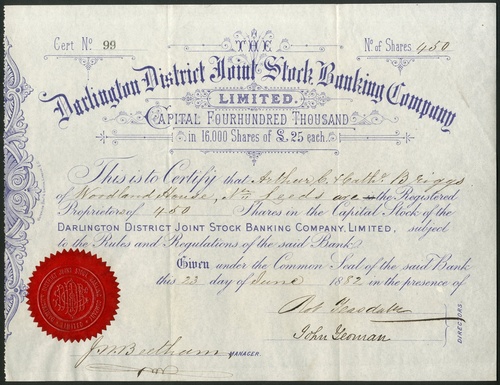 THE
Cert. No. 99
No. of Shares. 450
Darlington District Joint Stock Banking Company
LIMITED.
CAPITAL FOURHUNDRED THOUSAND
in 16.000 Shares of £25 each.
This is to Certify that Arthur C. & Briggs
of Woodland House, Leeds are the Registered
Proprietors of 450 Shares in the Capital Stock of the
DARLINGTON DISTRICT JOINT STOCK BANKING COMPANY, LIMITED, subject
to the Rules and Regulations of the said Bank.
Given under the Common Seal of the said Bank
this 23 day of June 1882 in the presence of
Rob Teasdale
John Yeoman
DIRECTORS.
MANAGER.